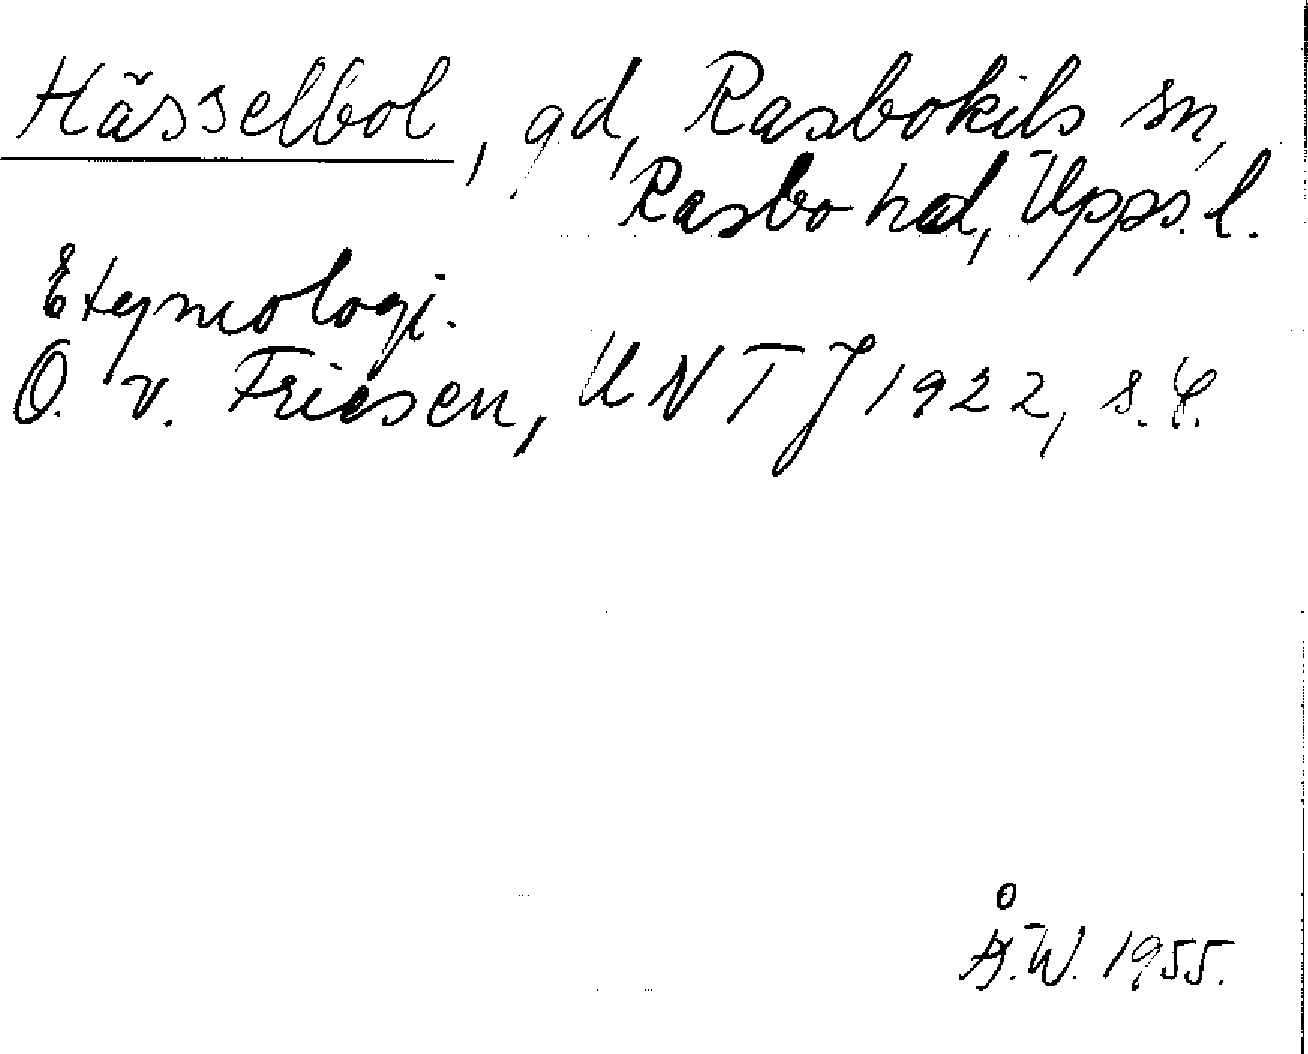 Hässelbol, gd, Rasbokils sn,
Rasbo hd, Upps. l.
Etymologi.
O. v. Friesen, UNTJ 1922, s.
Å.W. 1955.